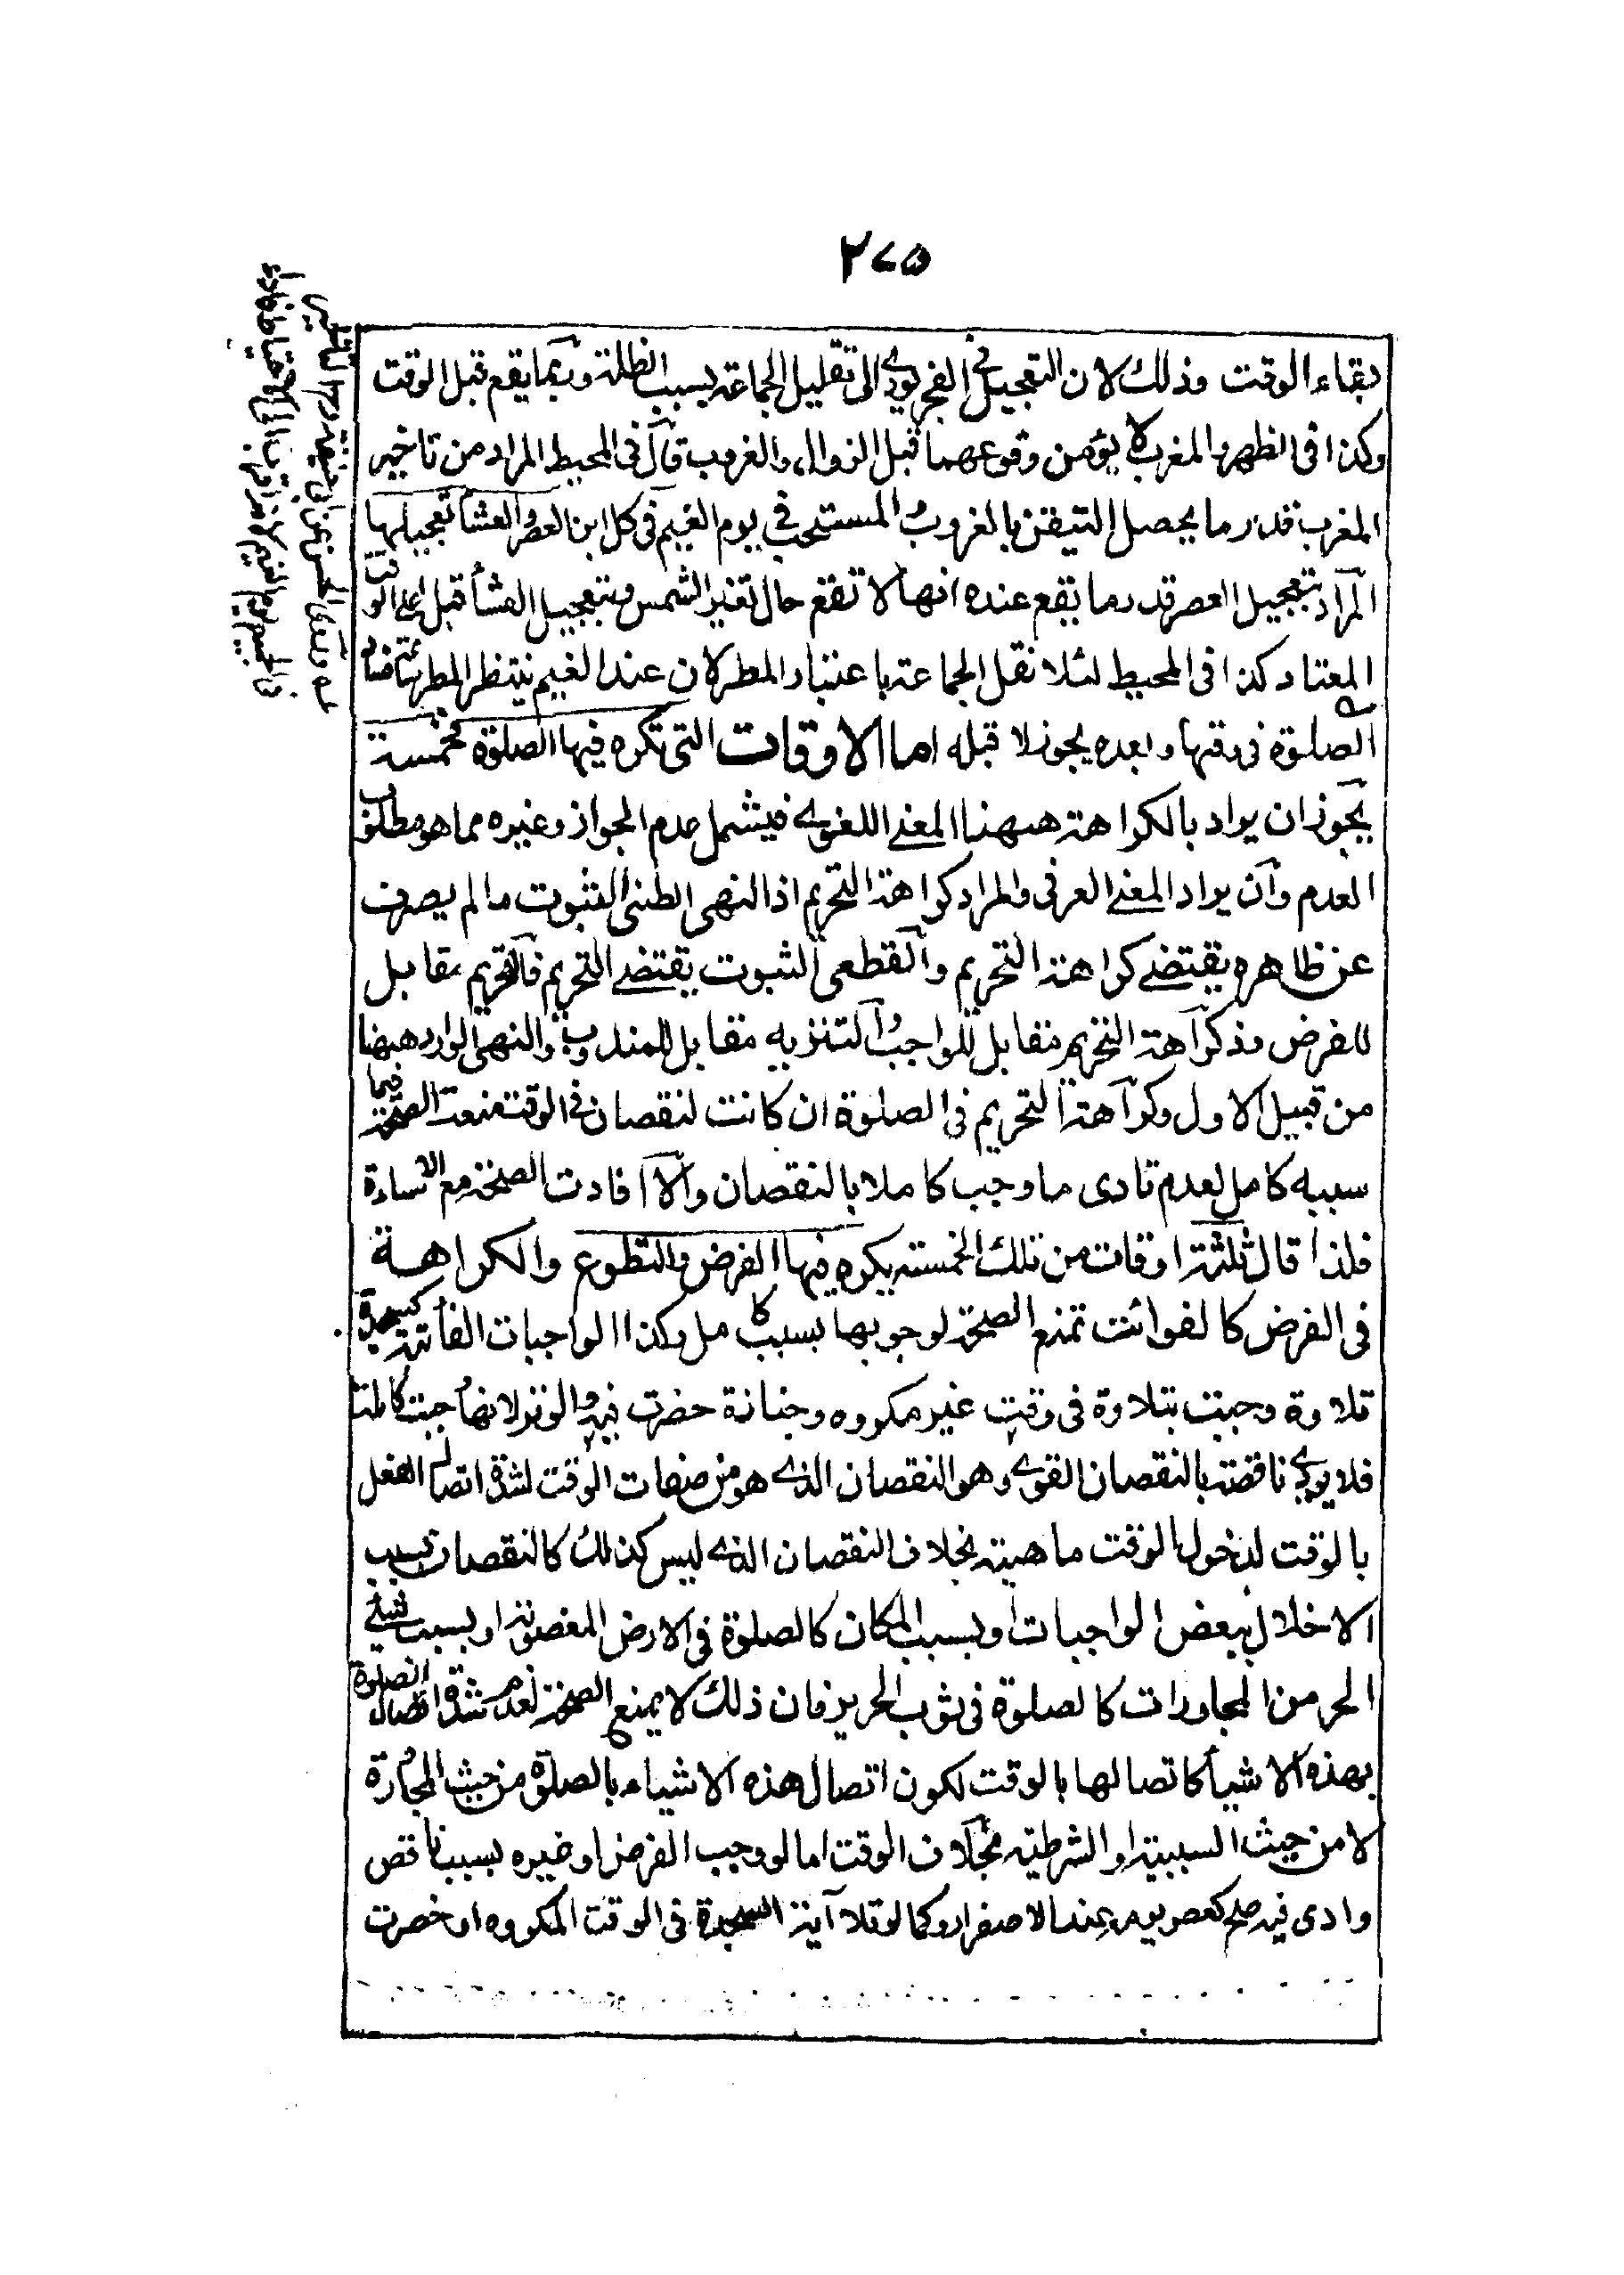 ٢٧٥
ببقاء الوقت وذلك لان التعجيل في الفجر يودى الى تقليل الجماعة بسبب الظلمة وربما يقع قبل الوقت
وكذا فى الظهر والمغرب لا يؤمن وقوعهما قبل الزوال والغروب قال فى المحيط المراد من تاخير
المغرب قدر ما يحصل التيقن بالغروب والمستحب في يوم الغيم فى كل ابن العصر والعشأ تعجيلها
المراد بتعجيل العصر قدر ما يقع عنده انها لا تقع حال تغير الشمس وبتعجيل العشأ قبل الوقت
المعتاد كذا فى المحيط لئلا تقل الجماعة باعتبار المطر لان عند الغيم ينتظر المطر
الصلوة فى وقتها وبعده يجوز لا قبله اما الاوقات التى تكره فيها الصلوة فخمسة
يجوز ان يراد بالكراهة ههنا المعنى اللغوى فيشمل عدم الجواز وغيره مما هو مطلوب
العدم وان يراد المعنى العرفى والمراد كراهة التحريم اذ النهى الظنى الثبوت ما لم يصرف
عن ظاهره يقتضى كراهة التحريم والقطعى الثبوت يقتضى التحريم فالتحريم مقابل
للفرض وذكراهة التحريم مقابل للواجب والتنزيه مقابل للمندوب والنهى الوارد ههنا
من قبيل الاول وكراهة التحريم فى الصلوة ان كانت لنقصان فى الوقت منعت الصحة فيما
سببه كامل لعدم تادى ما وجب كاملا بالنقصان والا افادت الصحة مع الاساءة
فلذا قال ثلثة اوقات من تلك الخمسة يكره فيها الفرض والتطوع والكراهة
فى الفرض كالفوائت تمنع الصحة لوجوبها بسبب كامل وكذا الواجبات الفائتة كسجدة
تلاوة وجبت بتلاوة فى وقت غير مكروه وجنازة حضرت فيه والوتر لانها وجبت كاملة
فلا يودى ناقصة بالنقصان القوى وهو النقصان الذى هو من صفات الوقت لشدة اتصال الفعل
بالوقت لدخول الوقت ماهيته بخلاف النقصان الذى ليس كذلك كالنقصان بسبب
الاخلال ببعض الواجبات او بسبب المكان كالصلوة فى الارض المغصوبة او بسبب شئى
اخر من المجاورات كالصلوة فى ثوب الحرير فان ذلك لا يمنع الصحة لعدم شدة اتصال الصلوة
بهذه الاشيأ كاتصالها بالوقت لكون اتصال هذه الاشياء بالصلوة من حيث المجاورة
لا من حيث السببية او الشرطية بخلاف الوقت اما لو وجب الفرض او غيره بسبب ناقص
وادى فيه صح كعصر يومه عند الاصفرار وكما لو تلا آية السجدة فى الوقت المكروه او حضرت